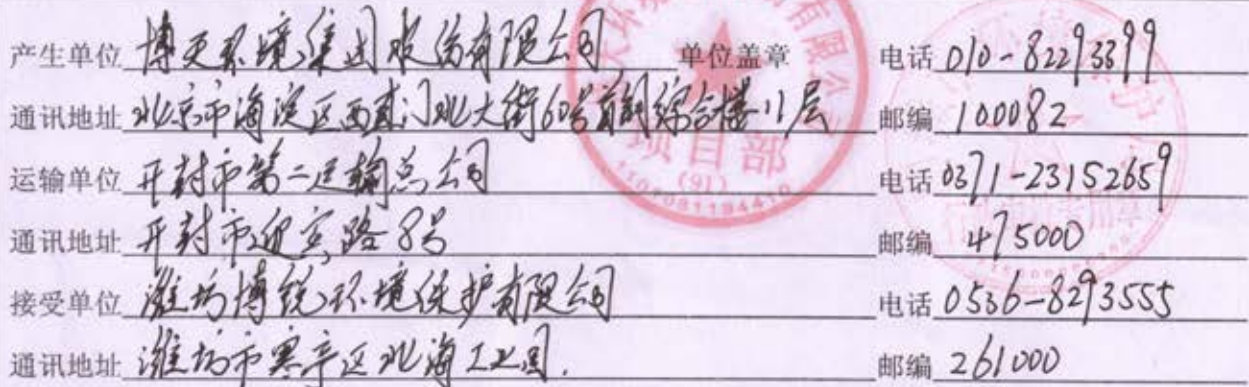 产生单位 博天环境集团股份有限公司 单位盖章 电话 010-82293399
通讯地址 北京市海淀区西直门北大街60号首钢综合楼11层 邮编 100082
运输单位 开封市第二运输总公司 电话 0371-23152659
通讯地址 开封市迎宾路8号 邮编 475000
接受单位 潍坊博锐环境保护有限公司 电话 0536-8293555
通讯地址 潍坊市寒亭区北海工业园. 邮编 261000
项目部
(91)